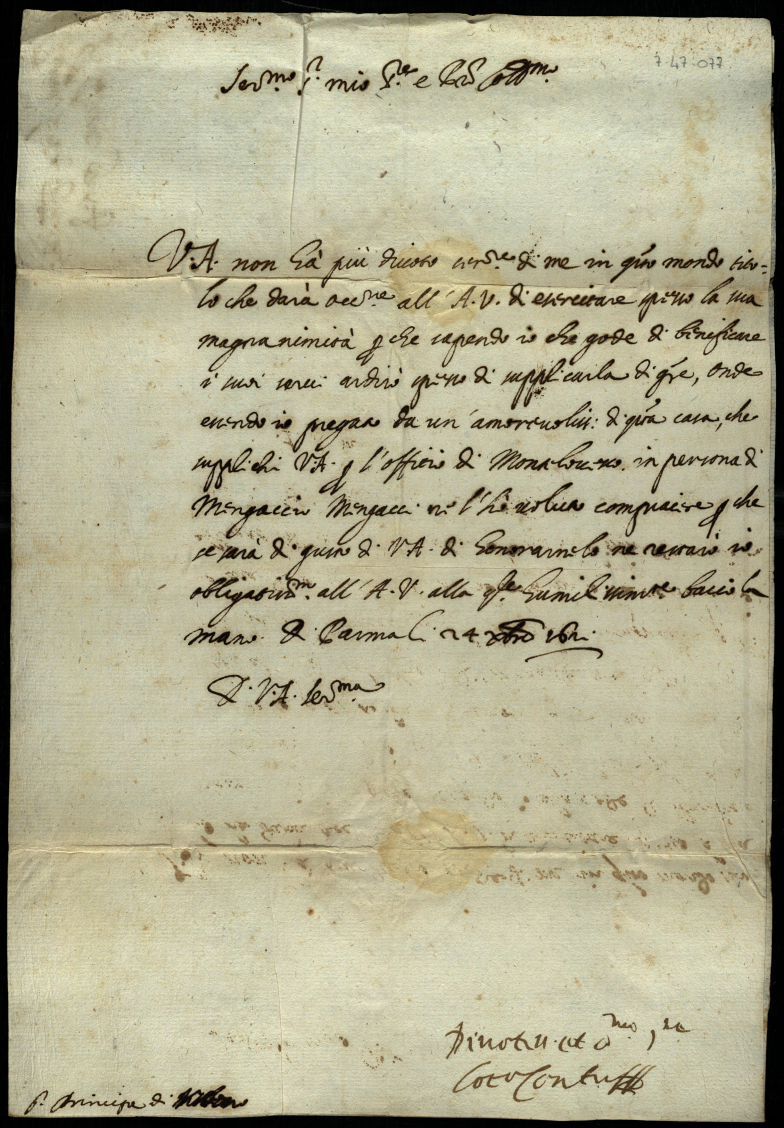 7-47-077
Ser.mo S.r mio S.re e P.rõ Coll.mo
V. A. non hà più divoto ser.re di me in q.to mondo tito=
lo che darà occ.ne all'A. V. di esercitare spesso la sua
magnanimità p che sapendo io che gode di beneficare
i suoi servi ardirò spesso di supplicarla di gr̃e, onde
essendo io pregato da un'amorevoliss: di q.ta casa, che
supplichi V.A. p l'officio di in persona di
Mengaccio Mengacci ne l'hò voluto compiacere p che
se sarà di gusto di V.A. di honorarnelo ne restarò io
obligatiss.mo all'A.V. alla q.le humilissim.te bacio la
mano. Di Parma li 24
D. V.A. Ser.ma
Divotiss. et o.mo s.re
S. Principe di